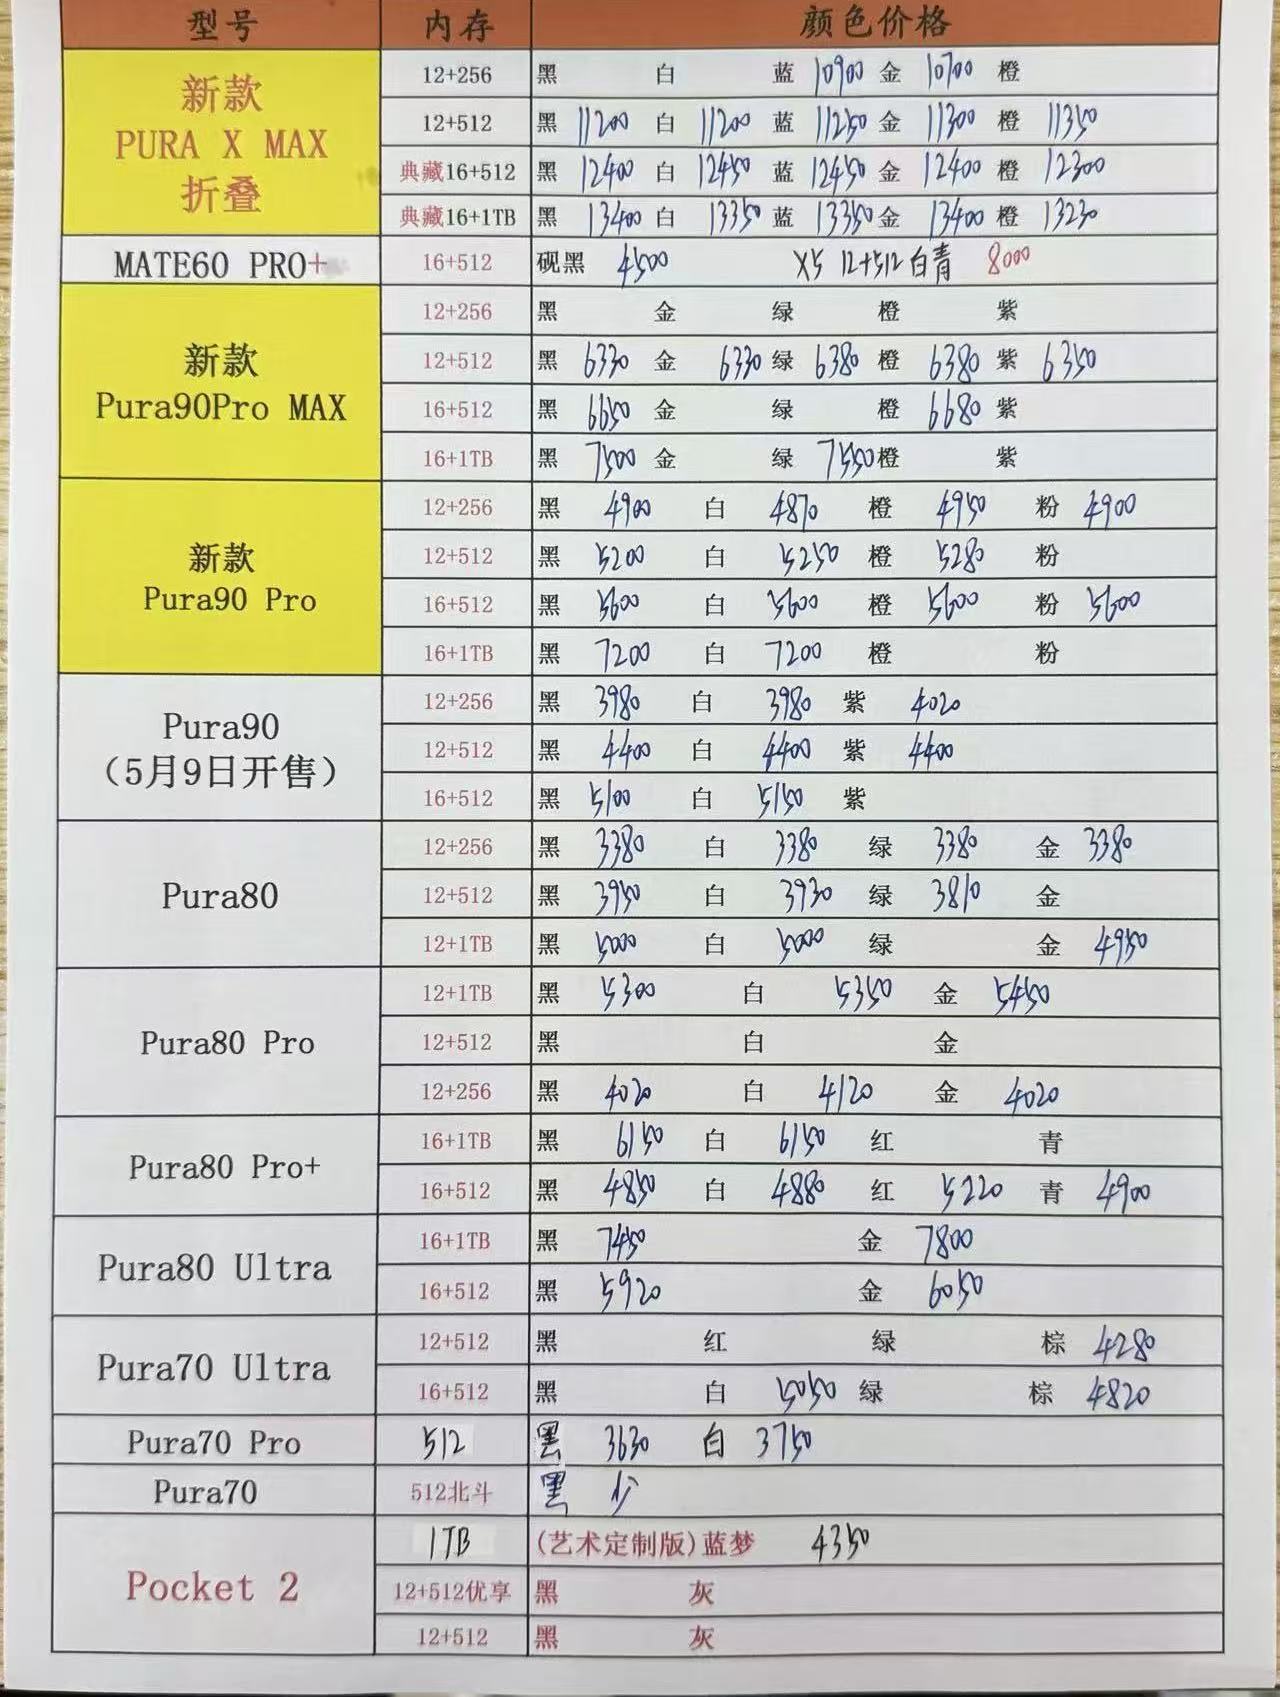 型号 内存 颜色价格
新款
PURA X MAX
折叠
12+256 黑 白 蓝 10900 金 10700 橙
12+512 黑 11200 白 11200 蓝 11250 金 11300 橙 11350
典藏16+512 黑 12400 白 12450 蓝 12450 金 12400 橙 12300
典藏16+1TB 黑 13400 白 13350 蓝 13350 金 13400 橙 13230
MATE60 PRO+ 16+512 砚黑 4500 X5 12+512 白青 8000
新款
Pura90Pro MAX
12+256 黑 金 绿 橙 紫
12+512 黑 6330 金 6330 绿 6380 橙 6380 紫 6350
16+512 黑 6650 金 绿 橙 6680 紫
16+1TB 黑 7500 金 绿 7550 橙 紫
新款
Pura90 Pro
12+256 黑 4900 白 4870 橙 4950 粉 4900
12+512 黑 5200 白 5250 橙 5280 粉
16+512 黑 5600 白 5600 橙 5600 粉 5600
16+1TB 黑 7200 白 7200 橙 粉
Pura90
（5月9日开售）
12+256 黑 3980 白 3980 紫 4020
12+512 黑 4400 白 4400 紫 4400
16+512 黑 5100 白 5150 紫
Pura80
12+256 黑 3380 白 3380 绿 3380 金 3380
12+512 黑 3950 白 3930 绿 3810 金
12+1TB 黑 5000 白 5000 绿 金 4950
Pura80 Pro
12+1TB 黑 5300 白 5350 金 5450
12+512 黑 白 金
12+256 黑 4020 白 4120 金 4020
Pura80 Pro+
16+1TB 黑 6150 白 6150 红 青
16+512 黑 4850 白 4880 红 5220 青 4900
Pura80 Ultra
16+1TB 黑 7450 金 7800
16+512 黑 5920 金 6050
Pura70 Ultra
12+512 黑 红 绿 棕 4280
16+512 黑 白 5050 绿 棕 4820
Pura70 Pro 512 黑 3630 白 3750
Pura70 512北斗 黑
Pocket 2
1TB (艺术定制版)蓝梦 4350
12+512优享 黑 灰
12+512 黑 灰